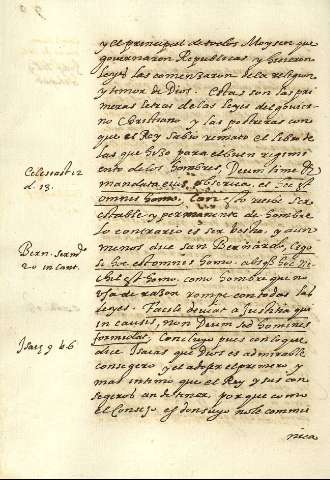 y el principal de todos Moysen que
governaron Republicas, y hicieron
leyes las comenzaron de la religion
y temor de Dios. Estas son las pri
meras letras de las leyes del govier
no Christiano y las postreras con
que el Rey Sabio remato el libro de
las que hizo para el buen regimi
ento de los hombres, Deum time et
mandata eius observa, est
omnis homo, ser
estable y permanente de hombre
lo contrario es ser bestia, y aun
menos dice san Bernardo, Ergo
si hoc est omnis homo, absque hoc ni
hil est homo. como hombre que no
usa de razon rompe con todas las
leyes. Facile deviat a justitia qui
in causis, non Deum sed homines
formidat, Concluyo pues con lo que
dice Isaias que Dios es admirable
consegero y el ha de ser el primero y
mas intimo que el Rey y sus con
segeros han de tener, porque como
el Consejo es don suyo no le commu
nica
Eclesiast 12
d. 13.
Bern. serm
20 in Cant.
Isai 9 b 6